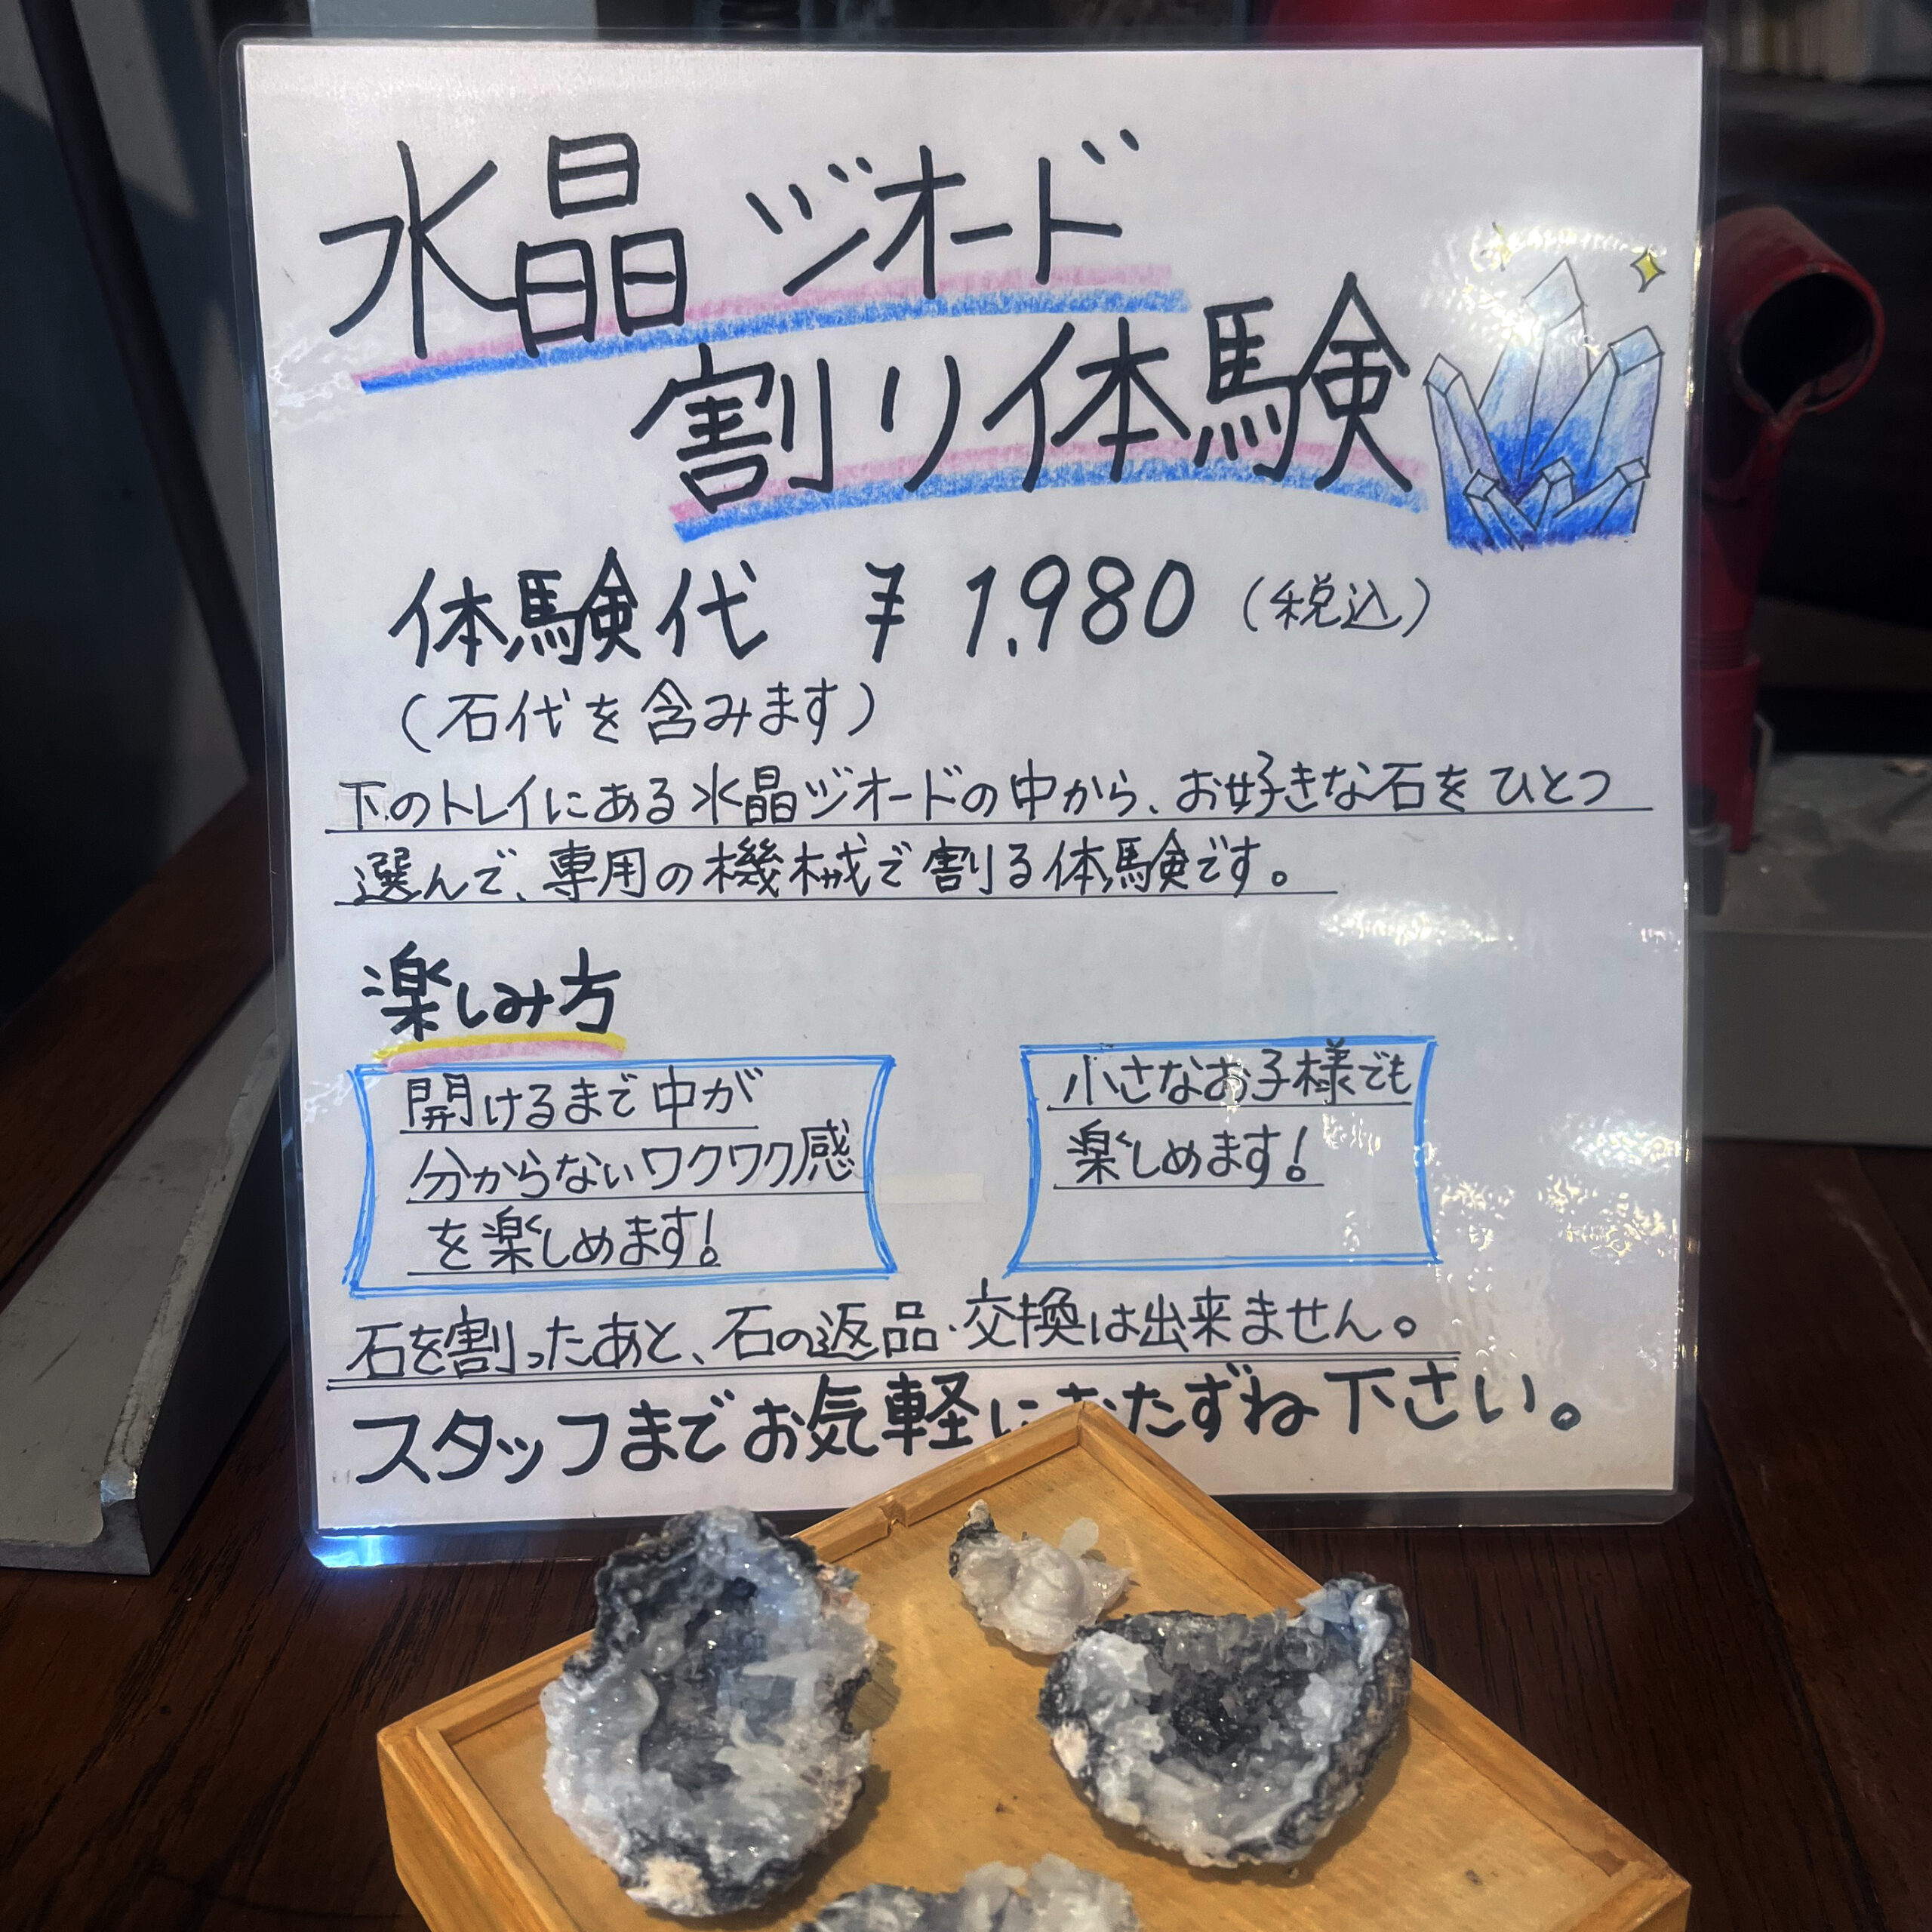 水晶ヅオード
割り体験
体験代 ¥1.980 (税込)
(石代を含みます)
下のトレイにある水晶ヅオードの中から、お好きな石をひとつ
選んで、専用の機械で割る体験です。
楽しみ方
開けるまで中が
分からないワクワク感
を楽しめます!
小さなお子様でも
楽しめます!
石を割ったあと、石の返品·交換は出来ません。
スタッフまでお気軽におたずね下さい。